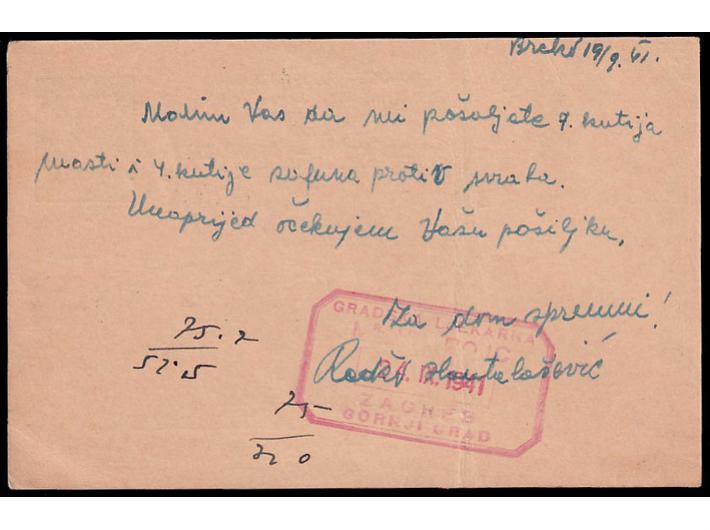 Brčko 19/9.41.
Molim Vas da mi pošaljete 7. kutija
masti i 4. kutije safuna protiv svraba.
Unaprijed očekujem Vašu pošiljku,
Za dom spremni!
75.7
52.5
75-
GRAD LJEKARNA
24. 1941
ZAGREB
GORNJI GRAD